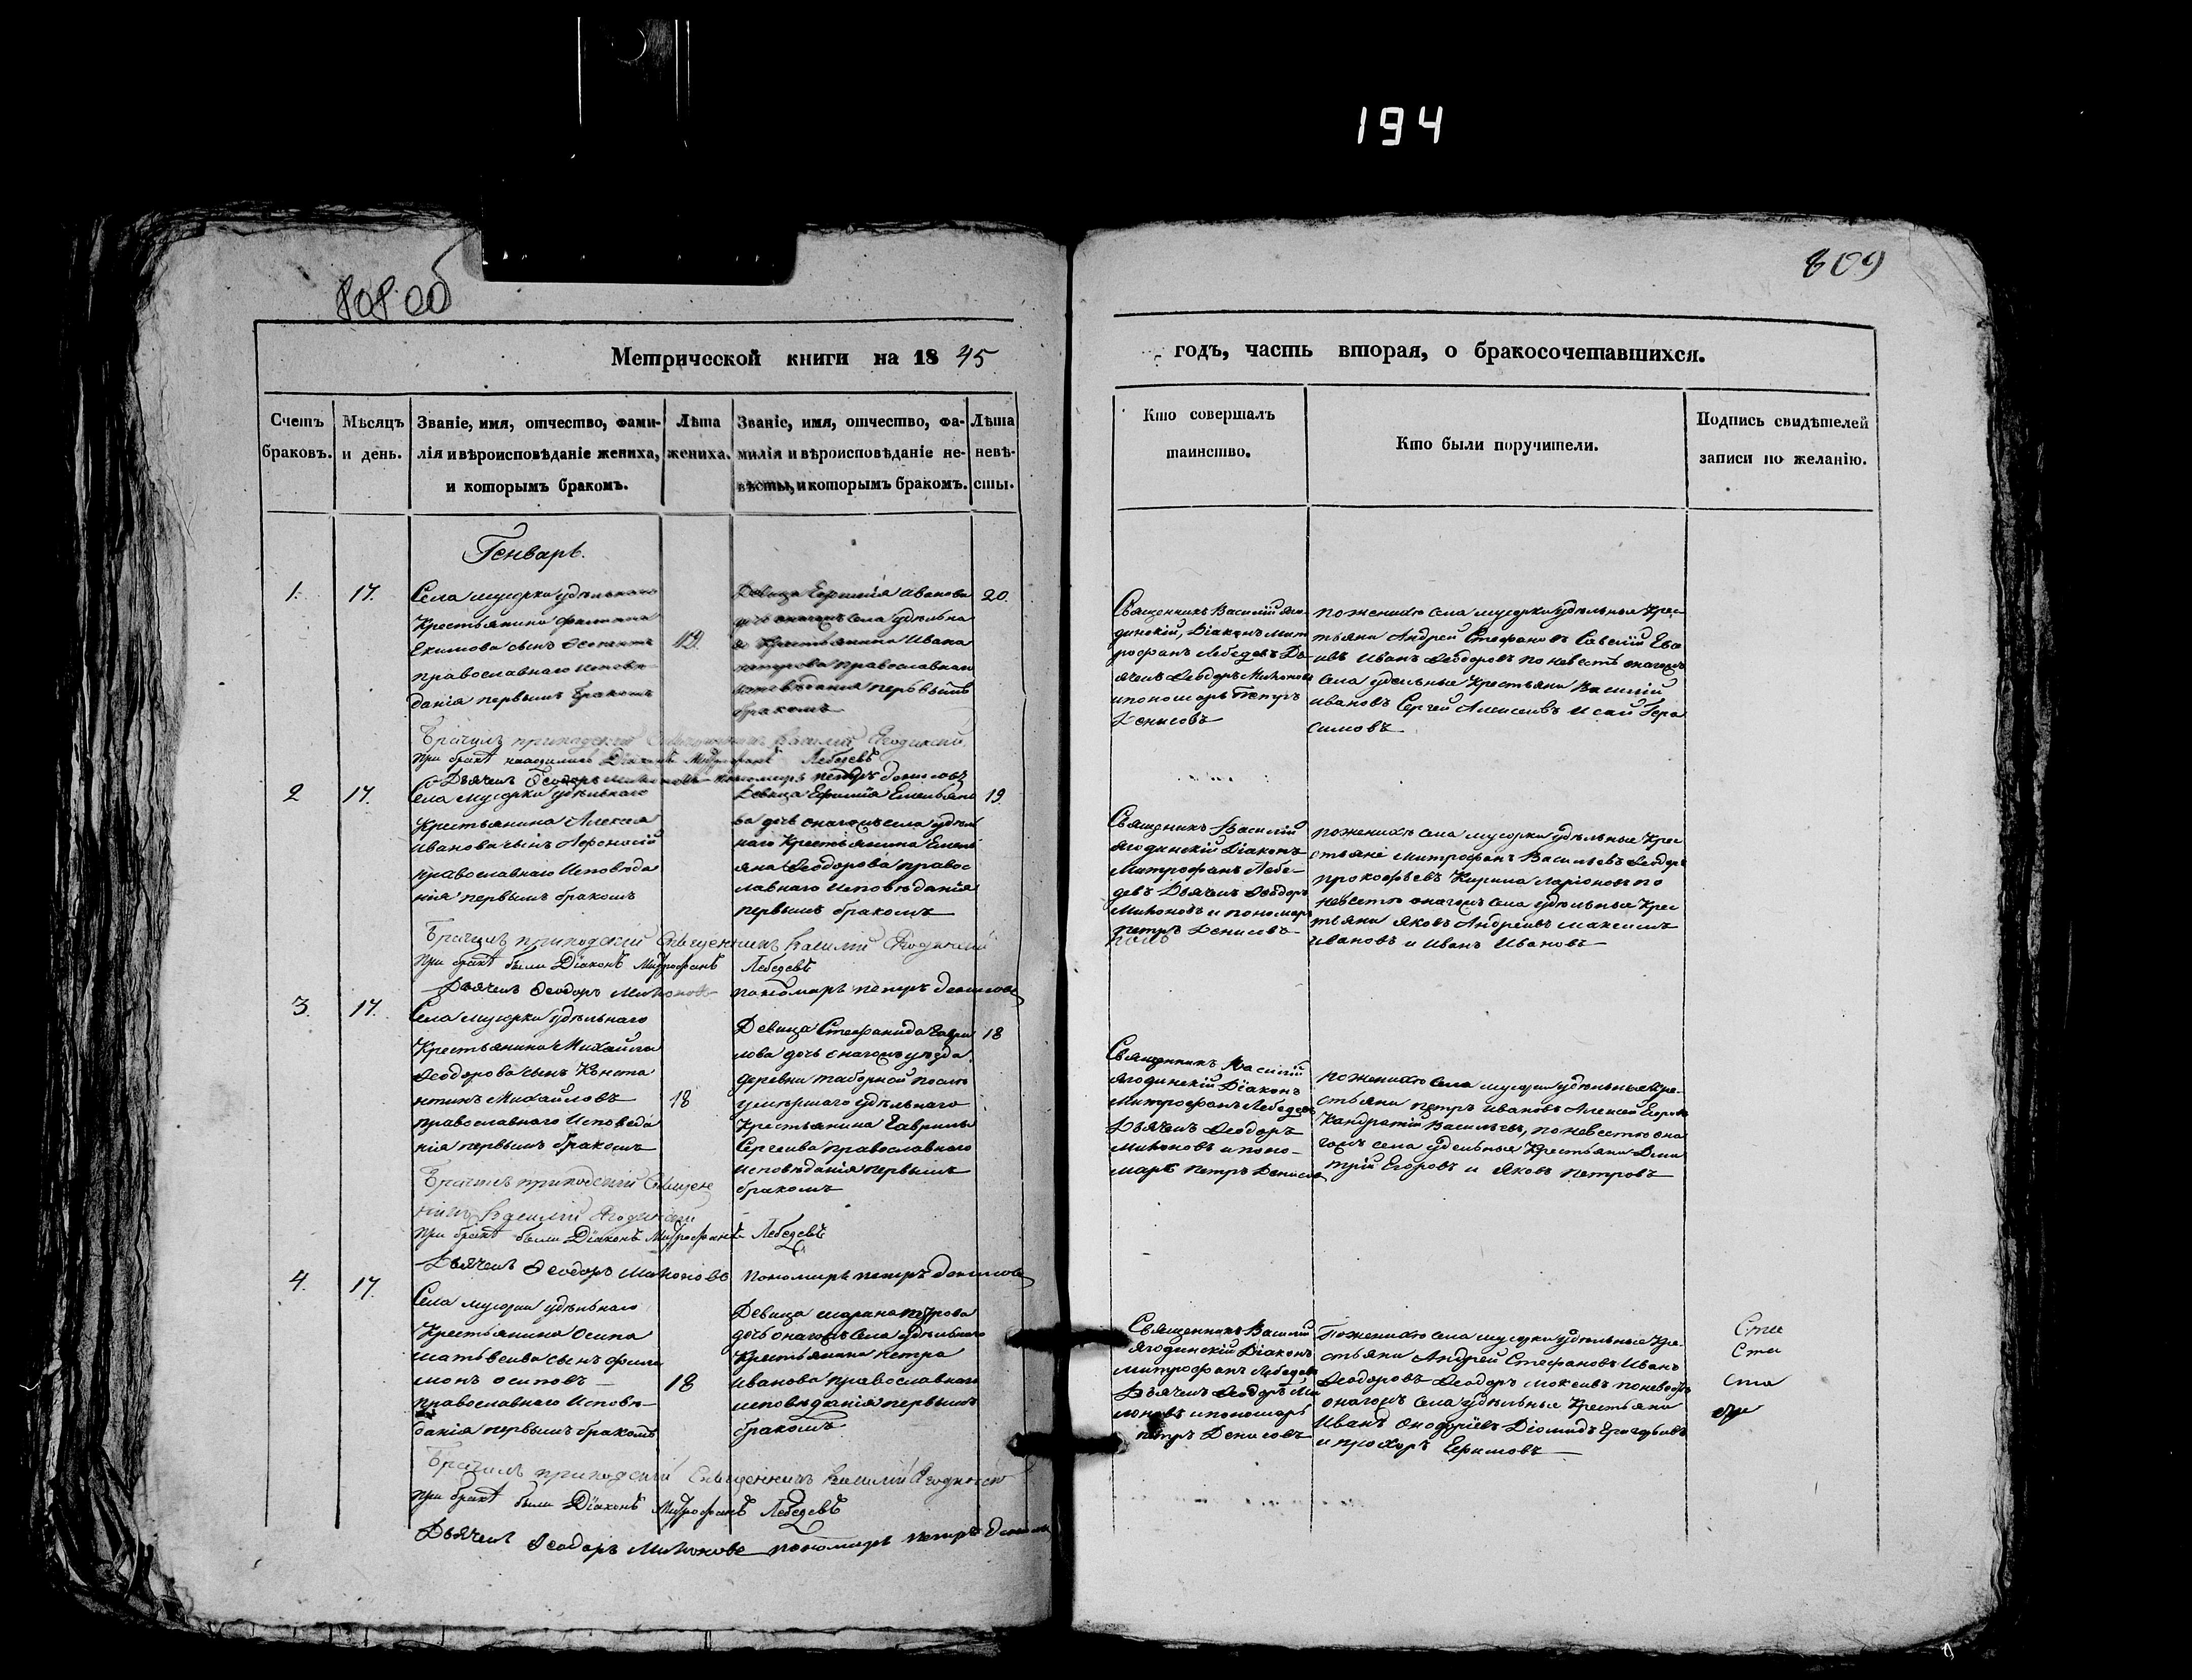 194
808 об
809
Метрической книги на 18 45
годъ, часть вторая, о бракосочетавшихся.
Счетъ браковъ.
Мѣсяцъ и день.
Званіе, имя, отчество, фами-
лія и вѣроисповѣданіе жениха,
и которымъ бракомъ.
Лѣта
жениха.
Званіе, имя, отчество, фа-
милія и вѣроисповѣданіе не-
вѣсты, и которымъ бракомъ.
Лѣта
невѣ-
сты.
Кто совершалъ
таинство.
Кто были поручители.
Подпись свидѣтелей
записи по желанію.
Генварь.
1.
17.
Села мусорки удѣльнаго
Крестьянина филиппа
Екимова сынъ
православнаго Исповѣ-
данія первымъ бракомъ
Девица Евфимія Иванова
дочь онагожъ села удѣльна
го Крестьянина Ивана
петрова православнаго
исповѣданія первымъ
бракомъ
20.
Священникъ Василій Яго-
динскій, Діаконъ Мит
рофанъ Лебедевъ Дь
ячекъ Ѳеодоръ
и пономарь Петръ
Денисовъ
по женихѣ села мусорки удѣльные Крес
тьяни Андрей Стефановъ Савелій
Иванъ Ѳеодоровъ по невестѣ онагожъ
села удельные Крестьяни Василій
Ивановъ Сергей Алексеевъ Исай Гера
симовъ
Брачилъ приходскій Священникъ Василій Ягодинскій
при бракѣ находились Діаконъ Митрофанъ Лебедевъ
Дьячекъ Ѳеодоръ пономарь петръ денисовъ
2
17.
Села мусорки удѣльнаго
Крестьянина Алексея
Иванова сынъ Афонасій
православнаго Исповѣда
нія первымъ бракомъ
Девица Ефимія Емельяно
ва дочь онагожъ села удѣль
наго Крестьянина Емель
яна Ѳеодорова правос
лавнаго Исповѣданія
первымъ бракомъ
19
Священникъ Василій
Ягодинскій Діаконъ
Митрофанъ Лебе-
девъ Дьячекъ Ѳеодоръ
и пономарь
петръ Денисовъ
по женихѣ села мусорки удѣльные Крес
тьяне Митрофанъ Васильевъ Ѳеодоръ
прокофьевъ Кирила Ларіоновъ по
невестѣ онагожъ села удѣльные Крес
тьяни Яковъ Андреевъ Максимъ
Ивановъ и Иванъ Ивановъ
Брачилъ приходскій Священникъ Василій Ягодинскій
при бракѣ были Діаконъ Митрофанъ Лебедевъ
Дьячекъ Ѳеодоръ пономарь петръ денисовъ
3.
17.
Села мусорки удѣльнаго
Крестьянина Михайла
Ѳеодорова сынъ Конста
нтинъ Михайловъ
православнаго Исповеда
нія первымъ бракомъ
18
Девица Стефанида Гаври
лова дочь онагожъ уезда
деревни таборной после
умершаго удѣльнаго
Крестьянина Гаврилы
Сергеива православнаго
исповѣданія первымъ
бракомъ
18
Священникъ Василій
Ягодинскій Діаконъ
Митрофанъ Лебедевъ
Дьячекъ Ѳеодоръ
и поно-
марь петръ Денисовъ
по женихѣ села мусорки удѣльные Кре-
стьяни петръ Ивановъ Алексей Егоровъ
Кандратій Васильевъ, по невестѣ она
гожъ села удельные Крестьяни Дми
трій Егоровъ и Яковъ Петровъ
Брачилъ приходскій Священ
никъ Василій Ягодинскій
При бракѣ были Діаконъ Митрофанъ Лебедевъ
Дьячекъ Ѳеодоръ пономарь петръ денисовъ
4.
17.
Села мусорки удѣльнаго
Крестьянина Осипа
матвеева сынъ фили
монъ осиповъ
православнаго Исповѣ-
данія первымъ бракомъ
18
Девица петрова
дочь онагожъ села удѣльнаго
Крестьянина петра
Иванова православнаго
исповѣданія первымъ
бракомъ
Священникъ Василій
Ягодинскій Діаконъ
Митрофанъ Лебедевъ
Дьячекъ Ѳеодоръ
и пономарь
петръ Денисовъ
По женихѣ села мусорки удѣльные Кре-
стьяни Андрей Стефановъ Иванъ
Ѳеодоровъ Ѳеодоръ по невестѣ
онагожъ села удѣльные Крестьяни
Иванъ Діомидъ Григорьевъ
и прохоръ Ефимовъ
Брачилъ приходскій Священникъ Василій Ягодинскій
При бракѣ были Діаконъ Митрофанъ Лебедевъ
Дьячекъ Ѳеодоръ пономарь петръ